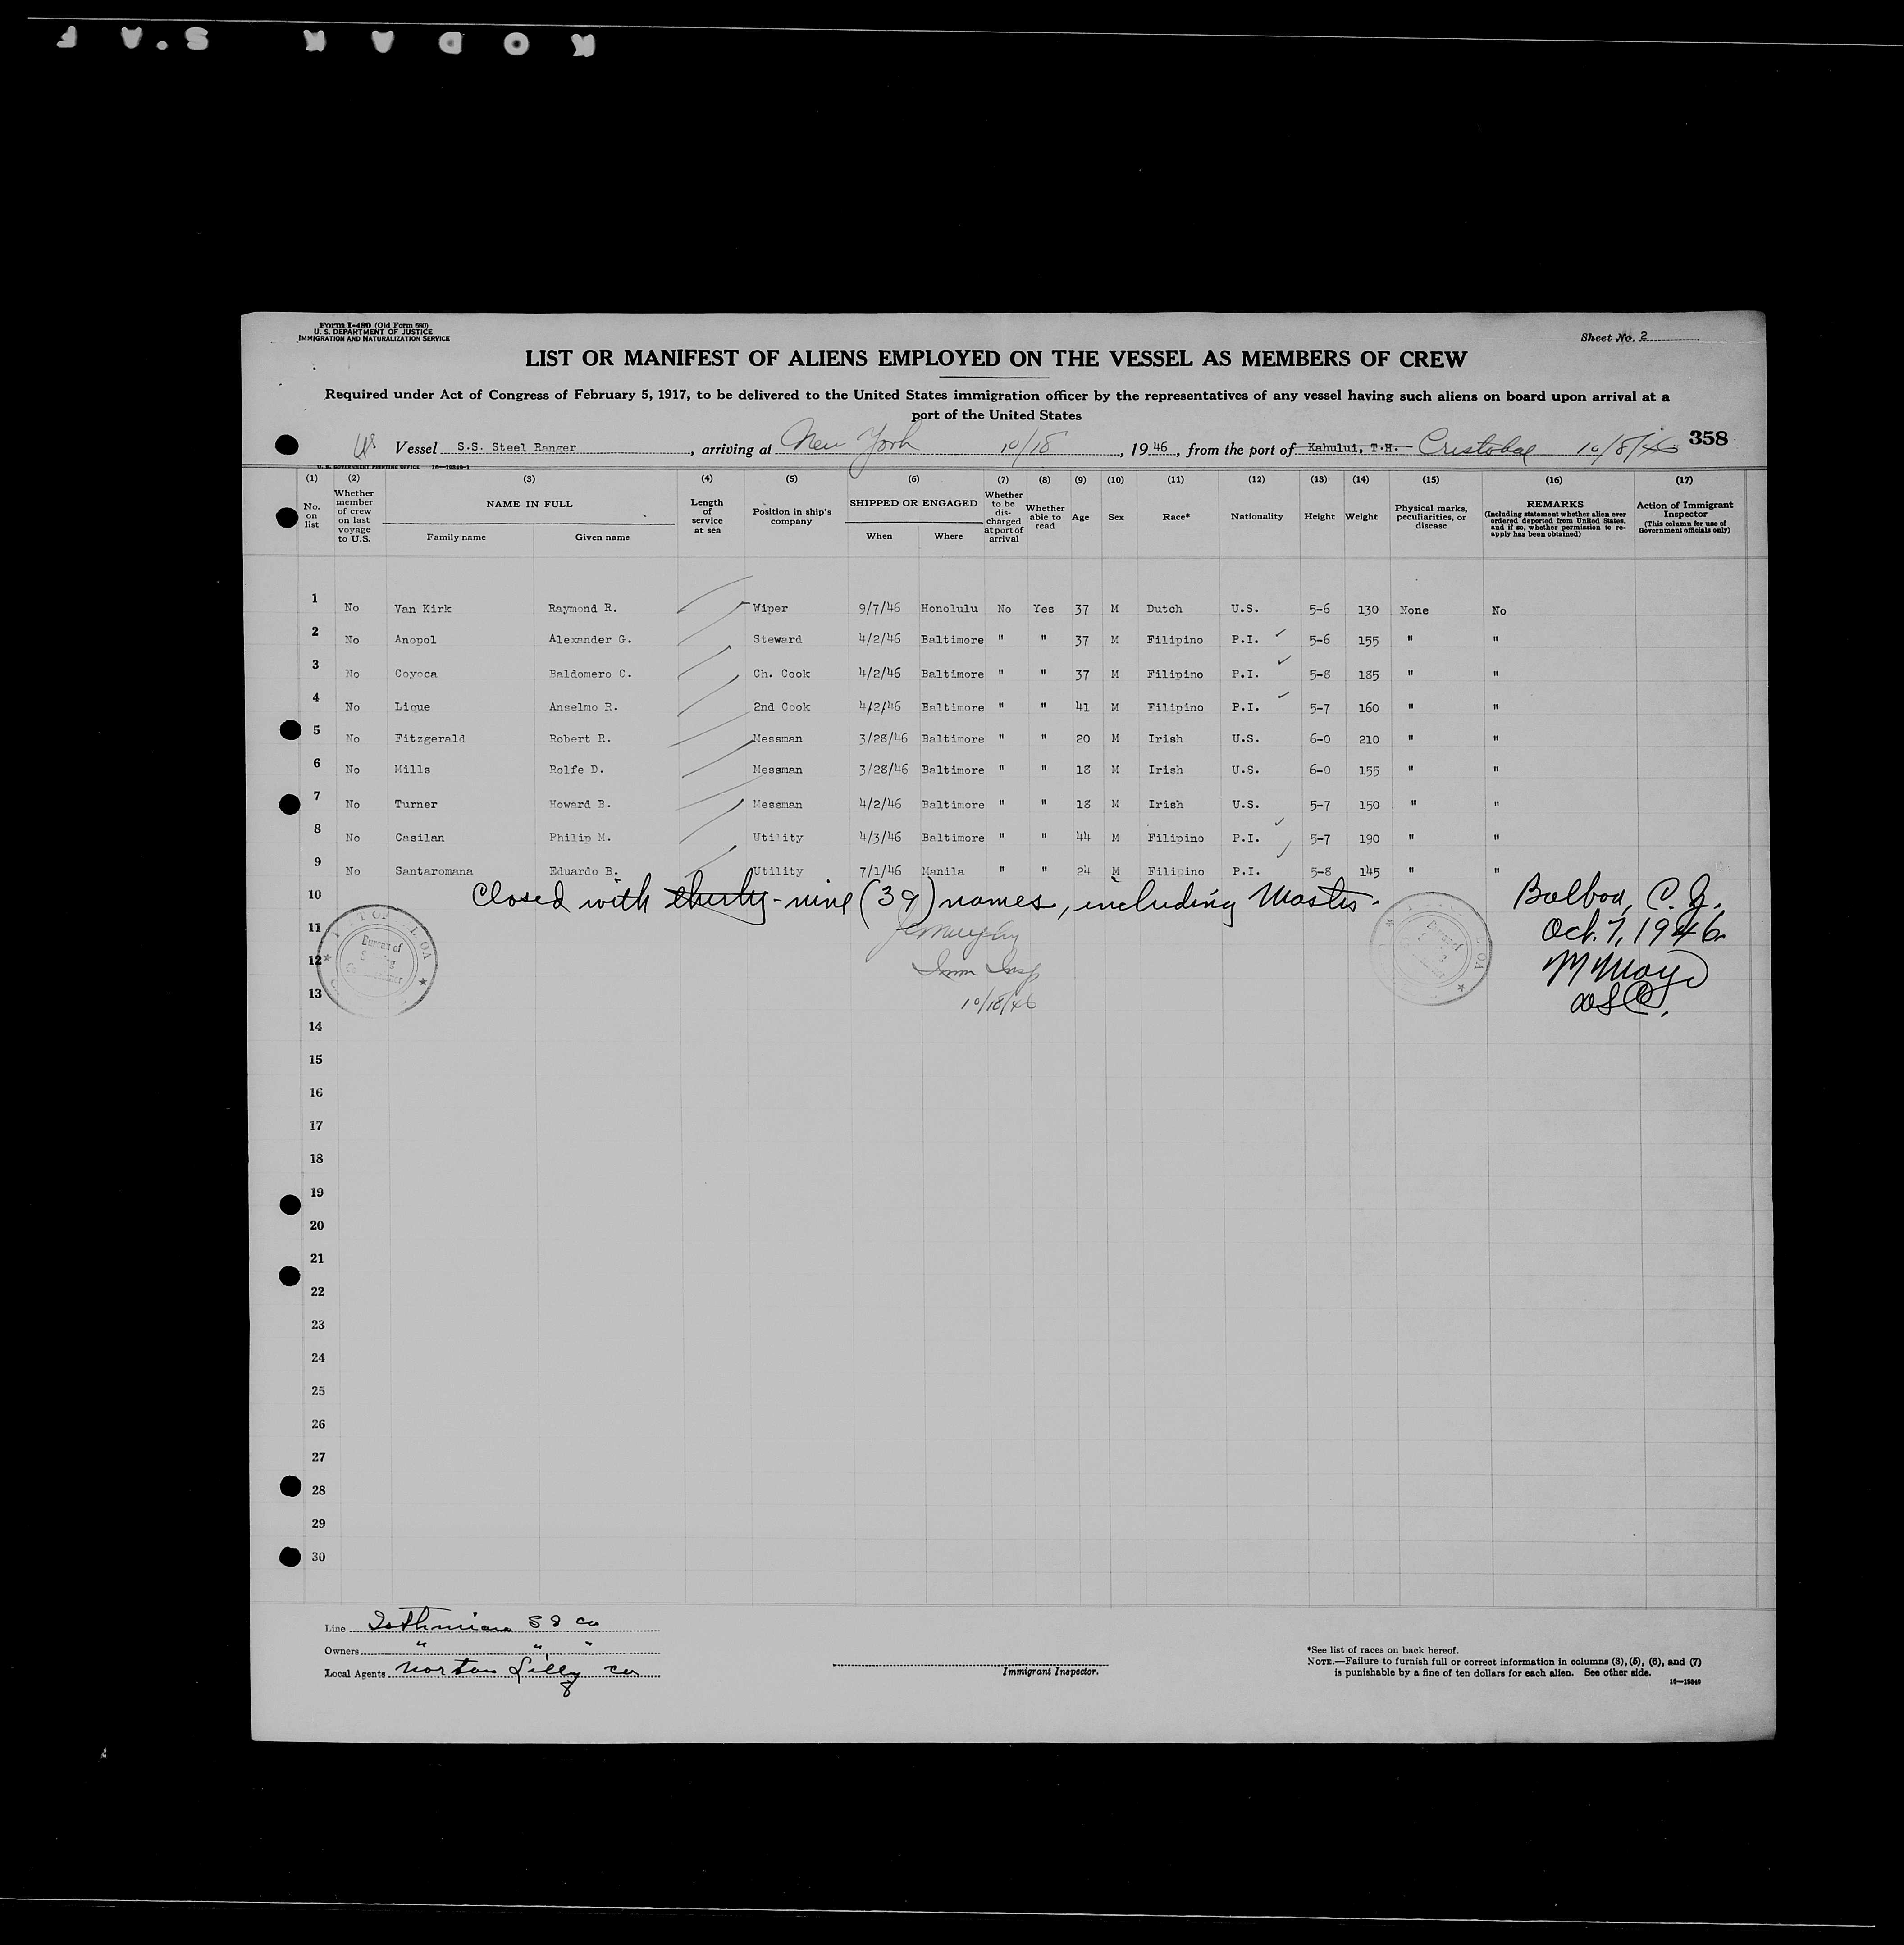 S.A F K O D A K
Form I-480 (Old Form 680)
U. S. DEPARTMENT OF JUSTICE
IMMIGRATION AND NATURALIZATION SERVICE
Sheet No. 2
LIST OR MANIFEST OF ALIENS EMPLOYED ON THE VESSEL AS MEMBERS OF CREW
Required under Act of Congress of February 5, 1917, to be delivered to the United States immigration officer by the representatives of any vessel having such aliens on board upon arrival at a
port of the United States
US Vessel S.S. Steel Ranger, arriving at New York 10/18, 1946, from the port of Kahului, T.H. Cristobal 10/8/46 358
U. S. GOVERNMENT PRINTING OFFICE 16—19849-1
(1) (2) (3) (4) (5) (6) (7) (8) (9) (10) (11) (12) (13) (14) (15) (16) (17)
No. on list
Whether member of crew on last voyage to U.S.
NAME IN FULL
Family name Given name
Length of service at sea
Position in ship's company
SHIPPED OR ENGAGED
When Where
Whether to be discharged at port of arrival
Whether able to read
Age
Sex
Race*
Nationality
Height
Weight
Physical marks, peculiarities, or disease
REMARKS
(Including statement whether alien ever ordered deported from United States, and if so, whether permission to reapply has been obtained)
Action of Immigrant Inspector
(This column for use of Government officials only)
1 No Van Kirk Raymond R. Wiper 9/7/46 Honolulu No Yes 37 M Dutch U.S. 5-6 130 None No
2 No Anopol Alexander G. Steward 4/2/46 Baltimore " " 37 M Filipino P.I. 5-6 155 " "
3 No Coyoca Baldomero C. Ch. Cook 4/2/46 Baltimore " " 37 M Filipino P.I. 5-8 185 " "
4 No Lique Anselmo R. 2nd Cook 4/2/46 Baltimore " " 41 M Filipino P.I. 5-7 160 " "
5 No Fitzgerald Robert R. Messman 3/28/46 Baltimore " " 20 M Irish U.S. 6-0 210 " "
6 No Mills Rolfe D. Messman 3/28/46 Baltimore " " 18 M Irish U.S. 6-0 155 " "
7 No Turner Howard B. Messman 4/2/46 Baltimore " " 18 M Irish U.S. 5-7 150 " "
8 No Casilan Philip M. Utility 4/3/46 Baltimore " " 44 M Filipino P.I. 5-7 190 " "
9 No Santaromana Eduardo B. Utility 7/1/46 Manila " " 24 M Filipino P.I. 5-8 145 " "
10 Closed with thirty-nine (39) names, including Master. Balboa, C.Z.
11 Oct. 7, 1946
12 Imm Insp
13 10/18/46
Bureau of
14
15
16
17
18
19
20
21
22
23
24
25
26
27
28
29
30
Line Isthmian SS Co
Owners " " "
Local Agents Norton Lilly Co
Immigrant Inspector.
*See list of races on back hereof.
NOTE.—Failure to furnish full or correct information in columns (3), (5), (6), and (7)
is punishable by a fine of ten dollars for each alien. See other side.
16—19849